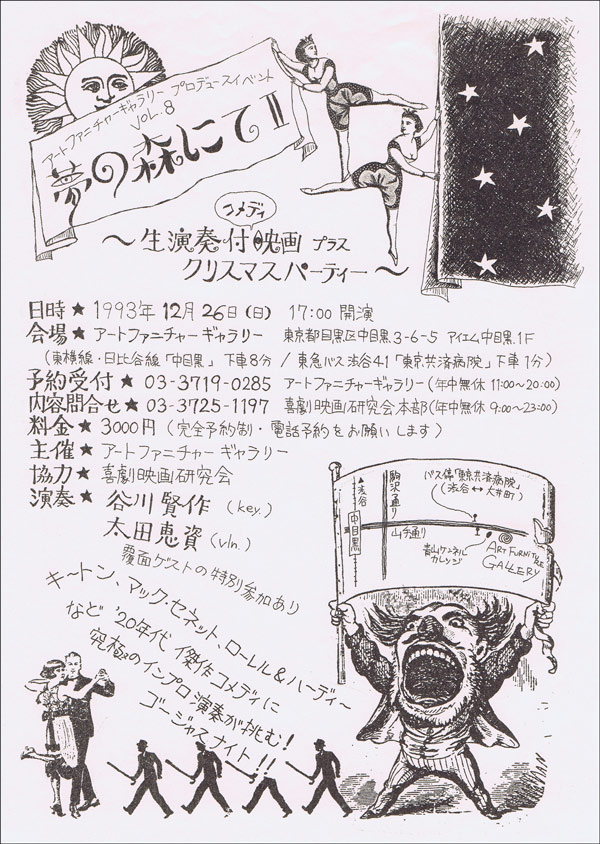 アートファニチャーギャラリー プロデュースイベント
VOL.8
夢の森にてⅡ
コメディ
〜生演奏付映画 プラス
クリスマスパーティー〜
日時★1993年12月26日(日) 17:00 開演
会場★アートファニチャーギャラリー 東京都目黒区中目黒3-6-5 アイエム中目黒1F
(東横線・日比谷線「中目黒」下車8分/東急バス渋谷41「東京共済病院」下車1分)
予約受付★03-3719-0285 アートファニチャーギャラリー(年中無休 11:00〜20:00)
内容問合せ★03-3725-1197 喜劇映画研究会本部(年中無休 9:00〜23:00)
料金★3000円(完全予約制・電話予約をお願いします)
主催★アートファニチャーギャラリー
協力★喜劇映画研究会
演奏★谷川賢作(key.)
太田恵資(vln.)
覆面ゲストの特別参加あり
キートン、マック・セネット、ローレル&ハーディ〜
など'20年代 傑作コメディに
究極のインプロ演奏が挑む!
ゴージャスナイト!!
▲渋谷
中目黒
駒沢通り
バス停「東京共済病院」
(渋谷↔大井町)
山手通り
青山ケンネル
カレッジ
ART FURNITURE
GALLERY